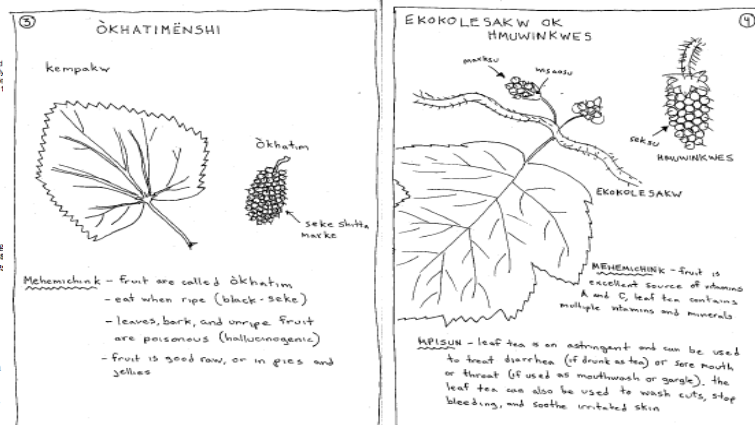 3
ÒKHATIMËNSHI
kempakw
òkhatim
seke shitta
maxke
Mehemichink - fruit are called òkhatim
- eat when ripe (black - seke)
- leaves, bark, and unripe fruit
are poisonous (hallucinogenic)
- fruit is good raw, or in pies and
jellies
4
EKOKOLESAKW OK
HMUWINKWES
maxksu
wisaosu
seksu
HMUWINKWES
EKOKOLESAKW
MEHEMICHINK - fruit is
excellent source of vitamins
A and C, leaf tea contains
multiple vitamins and minerals
MPISUN - leaf tea is an astringent and can be used
to treat diarrhea (if drunk as tea) or sore mouth
or throat (if used as mouthwash or gargle). the
leaf tea can also be used to wash cuts, stop
bleeding, and soothe irritated skin